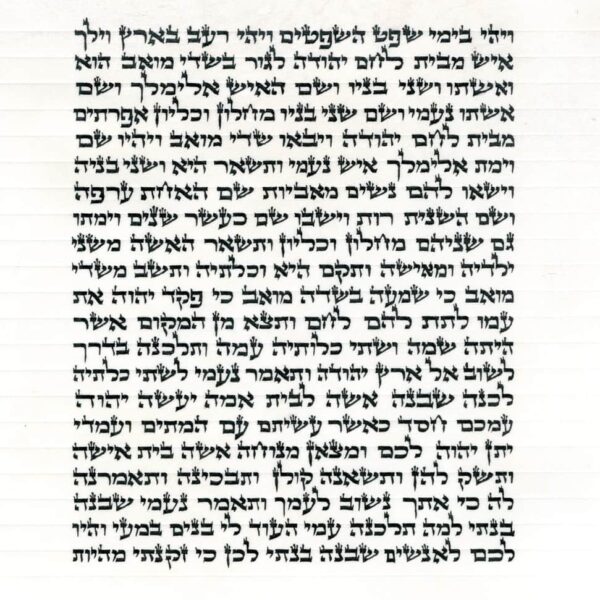 ויהי בימי שפט השפטים ויהי רעב בארץ וילך
איש מבית לחם יהודה לגור בשדי מואב הוא
ואשתו ושני בניו ושם האיש אלימלך ושם
אשתו נעמי ושם שני בניו מחלון וכליון אפרתים
מבית לחם יהודה ויבאו שדי מואב ויהיו שם
וימת אלימלך איש נעמי ותשאר היא ושני בניה
וישאו להם נשים מאביות שם האחת ערפה
ושם השנית רות וישבו שם כעשר שנים וימתו
גם שניהם מחלון וכליון ותשאר האשה משני
ילדיה ומאישה ותקם היא וכלתיה ותשב משדי
מואב כי שמעה בשדה מואב כי פקד יהוה את
עמו לתת להם לחם ותצא מן המקום אשר
היתה שמה ושתי כלותיה עמה ותלכנה בדרך
לשוב אל ארץ יהודה ותאמר נעמי לשתי כלתיה
לכנה שבנה אשה לבית אמה יעשה יהוה
עמכם חסד כאשר עשיתם עם המתים ועמדי
יתן יהוה לכם ומצאן מנוחה אשה בית אישה
ותשק להן ותשאנה קולן ותבכינה ותאמרנה
לה כי אתך נשוב לעמך ותאמר נעמי שבנה
בנתי למה תלכנה עמי העוד לי בנים במעי והיו
לכם לאנשים שבנה בנתי לכן כי זקנתי מהיות